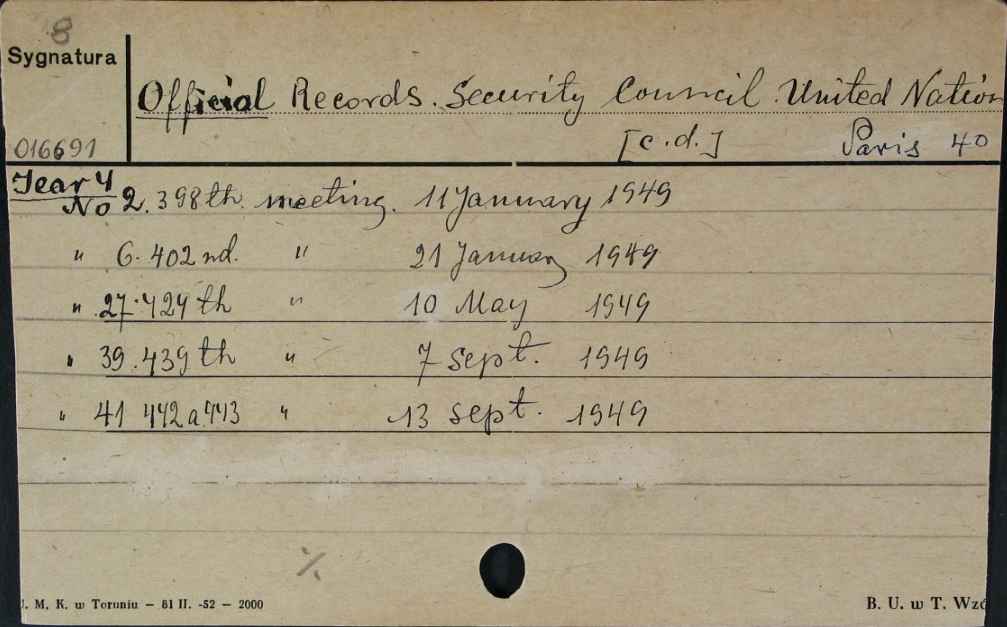 8
Sygnatura
Official Records. Security Council. United Nation
016691 [c.d.] Paris 40
Year 4
No 2. 398th. meeting. 11 January 1949
" 6. 402 nd. " 21 January 1949
" 27. 424 th " 10 May 1949
" 39. 439 th " 7 Sept. 1949
" 41 442 a 443 " 13 sept. 1949
%
U. M. K. w Toruniu — 81 II. -52 — 2000
B. U. w T. Wzó